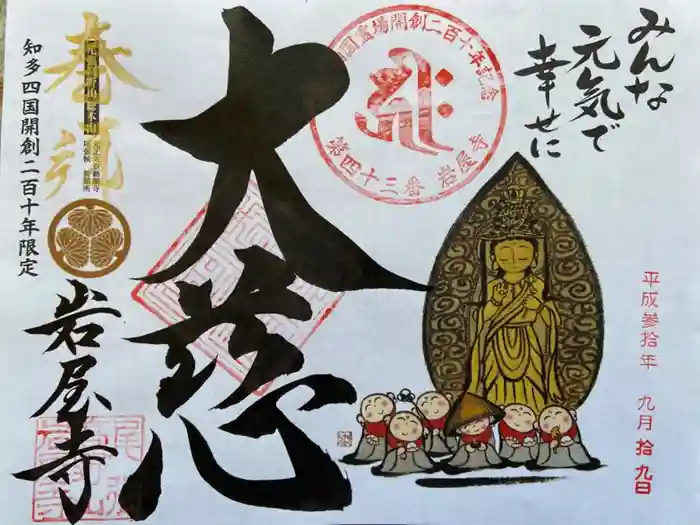 みんな
元気で
幸せに
平成参拾年 九月拾九日
国霊場開創二百十年記念
第四十三番 岩屋寺
大慈
奉拝
知多四国開創二百十年限定
岩屋寺